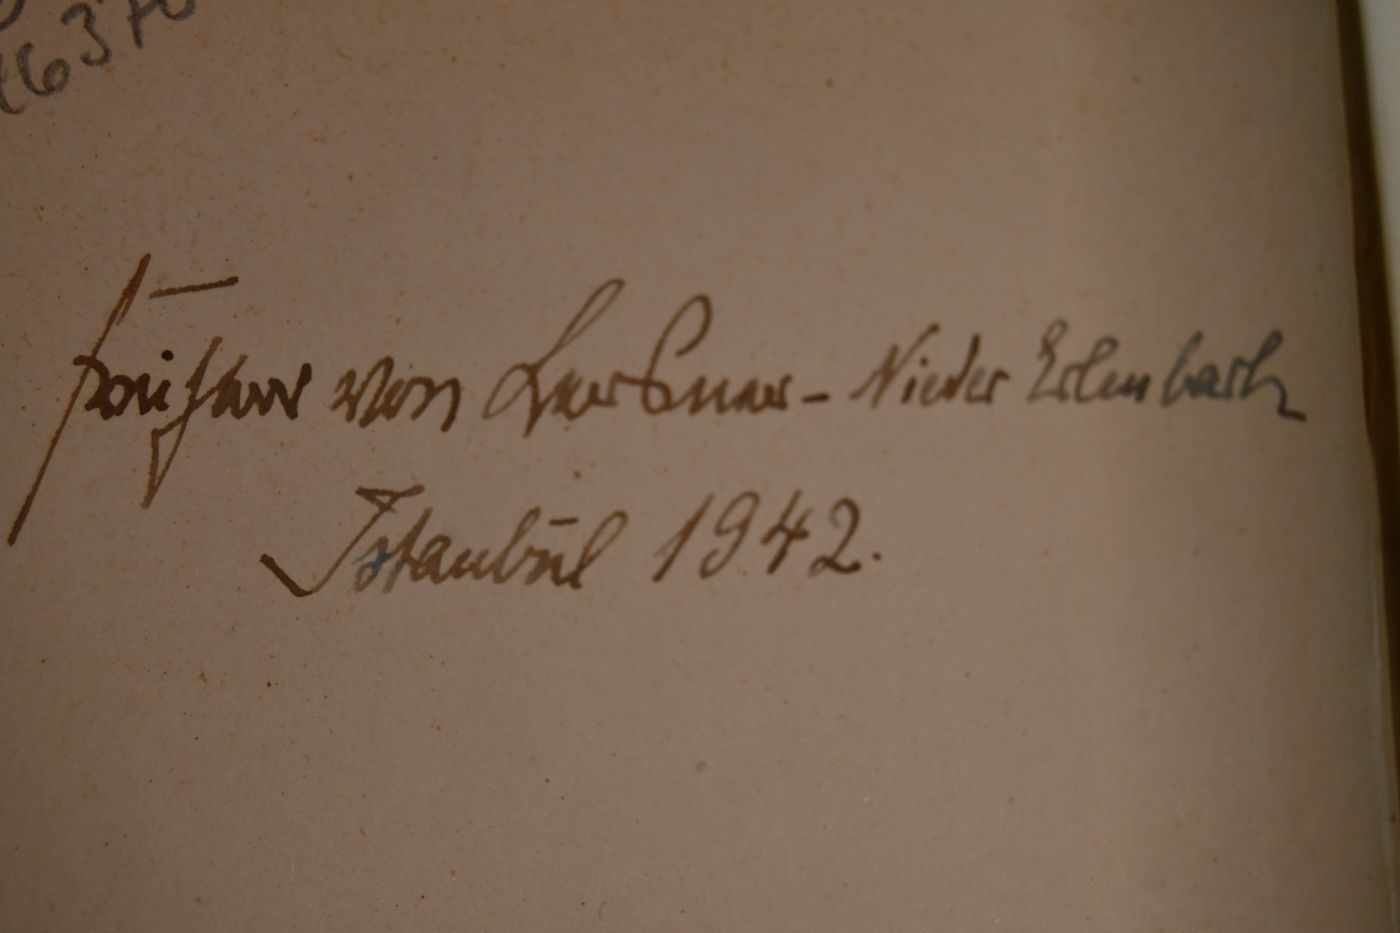 Freiherr von Lersner - Nieder Erlenbach
Istanbul 1942.